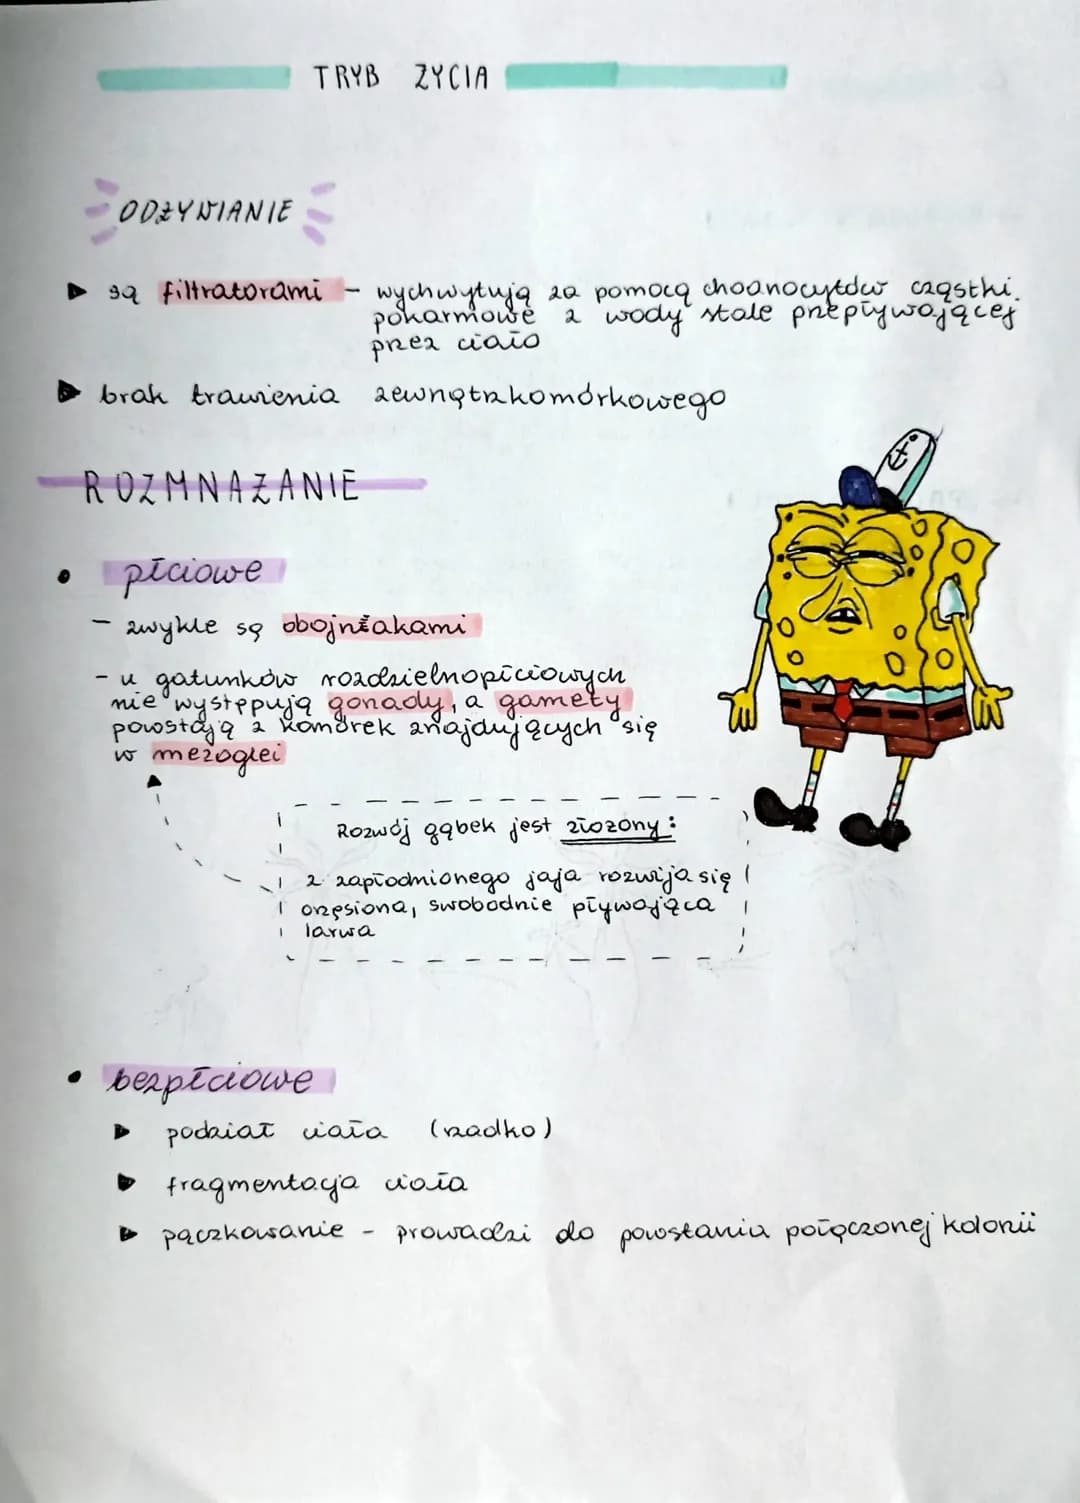 TRYB ŻYCIA
ODŻYWIANIE
są filtratorami - wychwytują za pomocą choanocytów cząstki
pokarmowe z wody stale przepływającej
przez ciało
brak trawienia zewnątrzkomórkowego
ROZMNAŻANIE
• płciowe
- zwykle są obojniakami
- u gatunków rozdzielnopłciowych
nie występują gonady, a gamety
powstają z komórek znajdujących się
w mezoglei
Rozwój gąbek jest złożony:
z zapłodnionego jaja rozwija się
orzęsiona, swobodnie pływająca
larwa
• bezpłciowe
podział ciała (rzadko)
fragmentacja ciała
pączkowanie - prowadzi do powstania połączonej kolonii